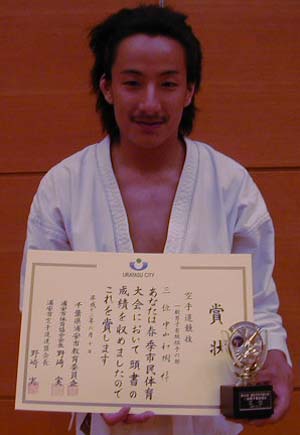 URAYASU CITY
賞状
空手道競技
一般男子有級組手の部
三位 中山和樹 様
あなたは春季市民体育
大会において頭書の
成績を収めましたので
これを賞します
平成十二年六月十日
千葉県浦安市教育委員会
浦安市体育協会会長 野崎 実
浦安市空手道連盟会長 野崎 实